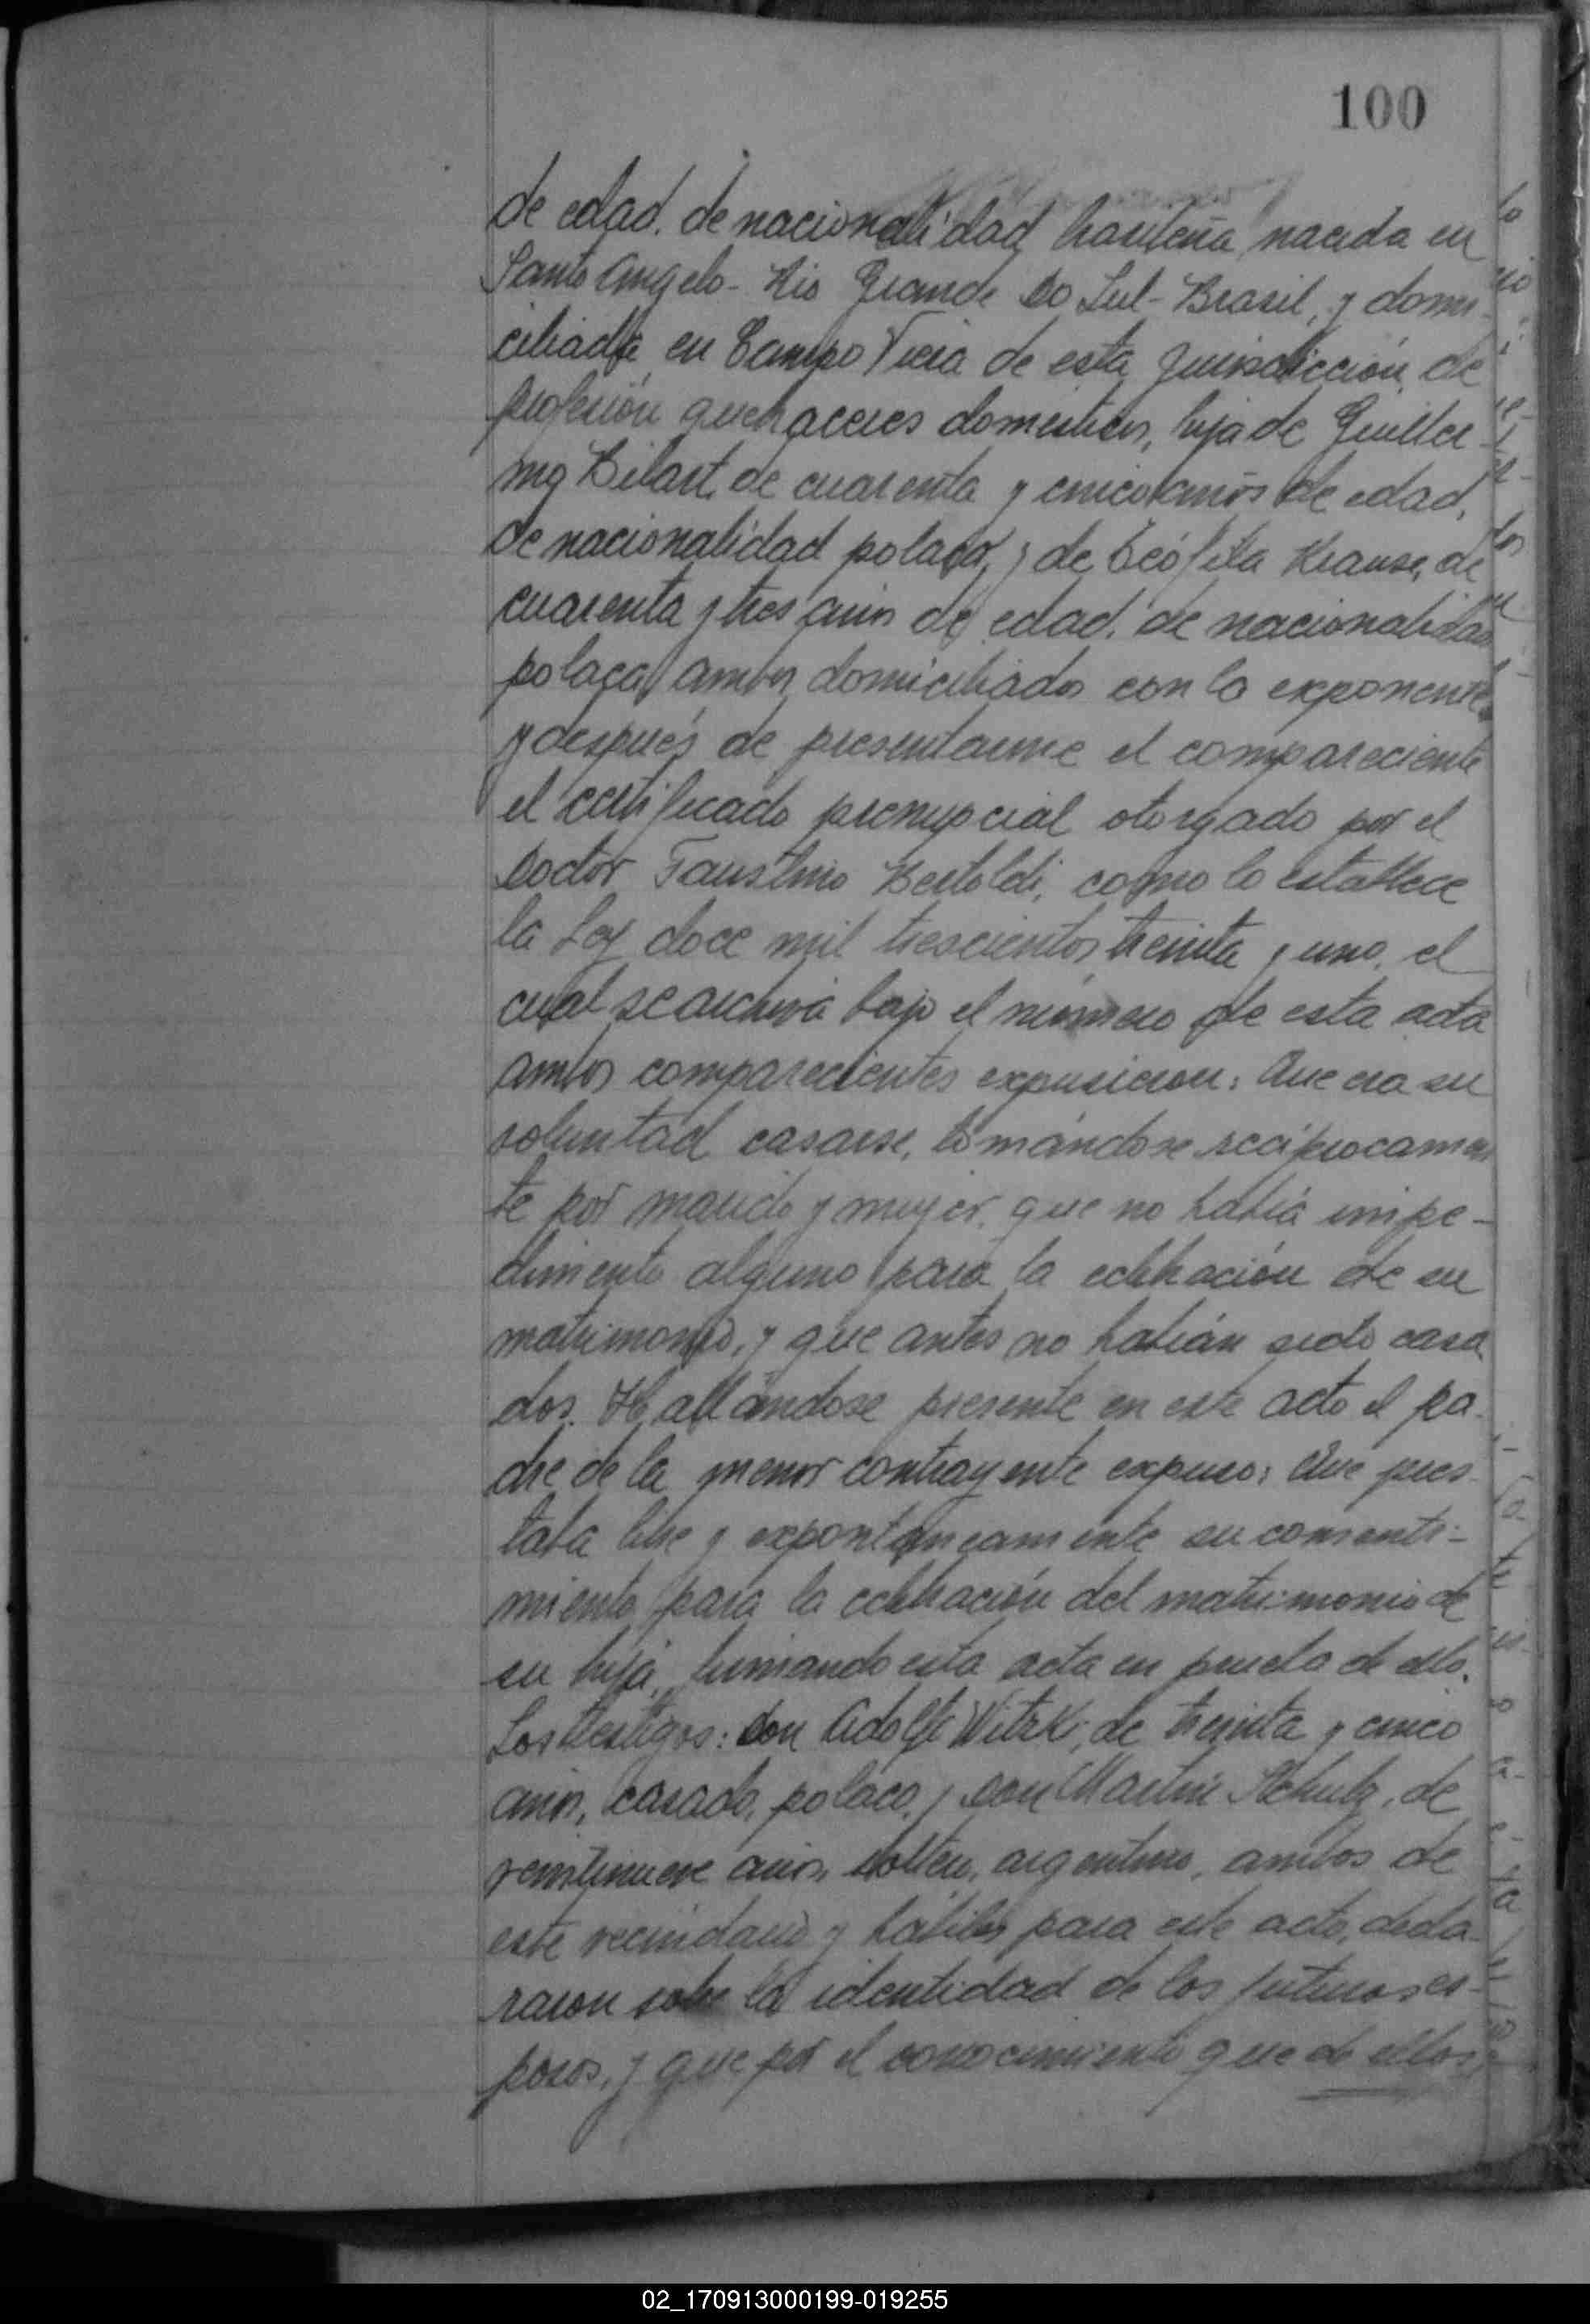 100
de edad, de nacionalidad brasileña, nacida en
Santo Angelo - Rio Grande Do Sul - Brasil, y domi-
ciliada en Campo Viera de esta jurisdicción, de
profesión quehaceres domésticos, hija de Guiller-
mo Bilart, de cuarenta y cinco años de edad,
de nacionalidad polaca, y de Teófila Krause, de
cuarenta y tres años de edad, de nacionalidad
polaca, ambos domiciliados con la exponente,
y después de presentarme el compareciente
el certificado prenupcial otorgado por el
Doctor Faustino Bertoldi, como lo establece
la Ley doce mil trescientos treinta y uno, el
cual se archiva bajo el número de esta acta
ambos comparecientes expusieron: Que era su
voluntad casarse, tomándose recíprocamen
te por marido y mujer, que no había impe-
dimento alguno para la celebración de su
matrimonio, y que antes no habían sido casa
dos. Hallándose presente en este acto el pa-
dre de la menor contrayente expuso: Que pres-
taba libre y expontáneamente su consenti-
miento para la celebración del matrimonio de
su hija, firmando esta acta en prueba de ello.
Los testigos: Don Adolfo Witzk, de treinta y cinco
años, casado, polaco, y Don Martín Schulz, de
veintinueve años, soltero, argentino, ambos de
este vecindario y hábiles para este acto, decla-
raron sobre la identidad de los futuros es-
posos, y que por el conocimiento que de ellos
02_170913000199-019255